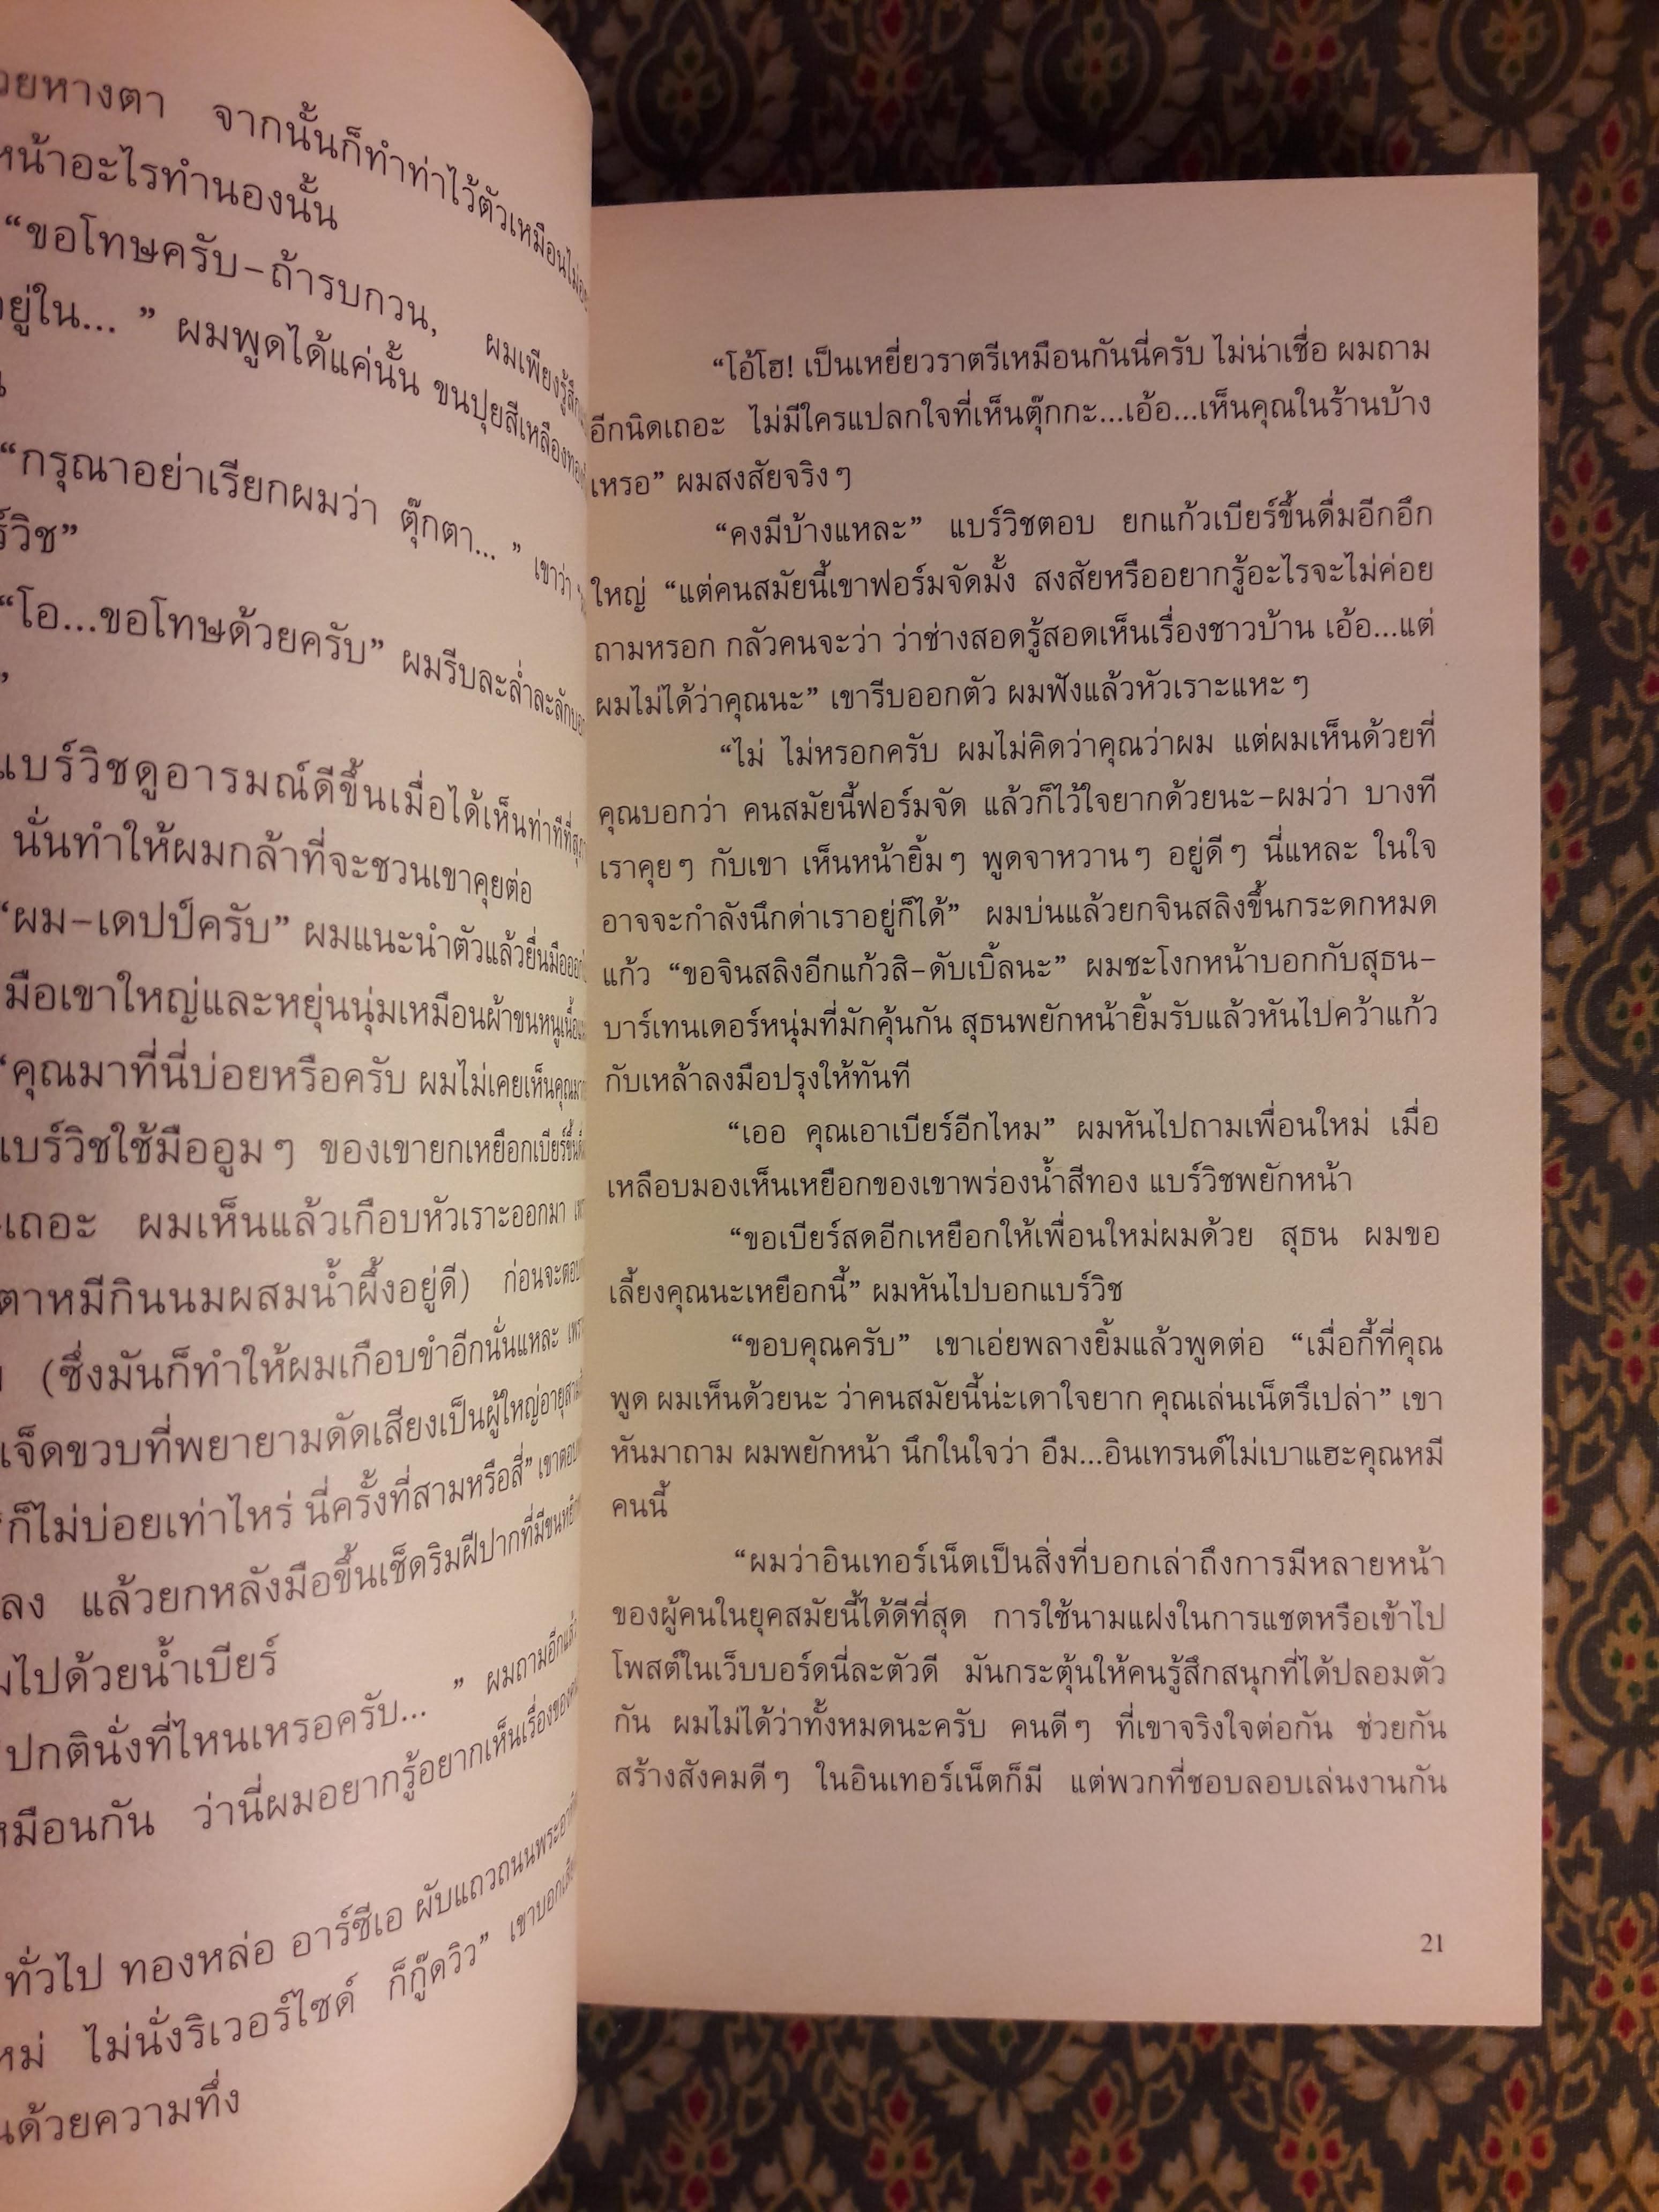 วยหางตา จากนั้นก็ทำท่าไว้ตัวเหมือน
หน้าอะไรทำนองนั้น
“ขอโทษครับ–ถ้ารบกวน, ผมเพียงรู้สึก
อยู่ใน... ” ผมพูดได้แค่นั้น ขนปุยสีเหลืองทอง
“กรุณาอย่าเรียกผมว่า ตุ๊กตา... ” เขาว่า
ร์วิช”
“โอ...ขอโทษด้วยครับ” ผมรีบละล่ำละลักบอก
แบร์วิชดูอารมณ์ดีขึ้นเมื่อได้เห็นท่าทีที่
นั่นทำให้ผมกล้าที่จะชวนเขาคุยต่อ
“ผม–เดปป์ครับ” ผมแนะนำตัวแล้วยื่นมือออก
มือเขาใหญ่และหยุ่นนุ่มเหมือนผ้าขนหนูเนื้อ
“คุณมาที่นี่บ่อยหรือครับ ผมไม่เคยเห็นคุณ
แบร์วิชใช้มืออูมๆ ของเขายกเหยือกเบียร์ขึ้น
เถอะ ผมเห็นแล้วเกือบหัวเราะออกมา
ตาหมีกินนมผสมน้ำผึ้งอยู่ดี) ก่อนจะตอบ
(ซึ่งมันก็ทำให้ผมเกือบขำอีกนั่นแหละ
เจ็ดขวบที่พยายามดัดเสียงเป็นผู้ใหญ่อายุ
“ก็ไม่บ่อยเท่าไหร่ นี่ครั้งที่สามหรือสี่” เขาตอบ
ลง แล้วยกหลังมือขึ้นเช็ดริมฝีปากที่มีขน
ไปด้วยน้ำเบียร์
ปกตินั่งที่ไหนเหรอครับ... ” ผมถามอีก
เหมือนกัน ว่านี่ผมอยากรู้อยากเห็นเรื่องของ
ทั่วไป ทองหล่อ อาร์ซีเอ ผับแถวถนนพระอาทิ
ไม่นั่งริเวอร์ไซด์ ก็กู๊ดวิว” เขาบอก
ด้วยความทึ่ง
“โอ้โฮ! เป็นเหยี่ยวราตรีเหมือนกันนี่ครับ ไม่น่าเชื่อ ผมถาม
อีกนิดเถอะ ไม่มีใครแปลกใจที่เห็นตุ๊กกะ...เอ้อ...เห็นคุณในร้านบ้าง
เหรอ” ผมสงสัยจริงๆ
“คงมีบ้างแหละ” แบร์วิชตอบ ยกแก้วเบียร์ขึ้นดื่มอีกอึก
ใหญ่ “แต่คนสมัยนี้เขาฟอร์มจัดมั้ง สงสัยหรืออยากรู้อะไรจะไม่ค่อย
ถามหรอก กลัวคนจะว่า ว่าช่างสอดรู้สอดเห็นเรื่องชาวบ้าน เอ้อ...แต่
ผมไม่ได้ว่าคุณนะ” เขารีบออกตัว ผมฟังแล้วหัวเราะแหะๆ
“ไม่ ไม่หรอกครับ ผมไม่คิดว่าคุณว่าผม แต่ผมเห็นด้วยที่
คุณบอกว่า คนสมัยนี้ฟอร์มจัด แล้วก็ไว้ใจยากด้วยนะ–ผมว่า บางที
เราคุยๆ กับเขา เห็นหน้ายิ้มๆ พูดจาหวานๆ อยู่ดีๆ นี่แหละ ในใจ
อาจจะกำลังนึกด่าเราอยู่ก็ได้” ผมบ่นแล้วยกจินสลิงขึ้นกระดกหมด
แก้ว “ขอจินสลิงอีกแก้วสิ–ดับเบิ้ลนะ” ผมชะโงกหน้าบอกกับสุธน–
บาร์เทนเดอร์หนุ่มที่มักคุ้นกัน สุธนพยักหน้ายิ้มรับแล้วหันไปคว้าแก้ว
กับเหล้าลงมือปรุงให้ทันที
“เออ คุณเอาเบียร์อีกไหม” ผมหันไปถามเพื่อนใหม่ เมื่อ
เหลือบมองเห็นเหยือกของเขาพร่องน้ำสีทอง แบร์วิชพยักหน้า
“ขอเบียร์สดอีกเหยือกให้เพื่อนใหม่ผมด้วย สุธน ผมขอ
เลี้ยงคุณนะเหยือกนี้” ผมหันไปบอกแบร์วิช
“ขอบคุณครับ” เขาเอ่ยพลางยิ้มแล้วพูดต่อ “เมื่อกี้ที่คุณ
พูด ผมเห็นด้วยนะ ว่าคนสมัยนี้น่ะเดาใจยาก คุณเล่นเน็ตรึเปล่า” เขา
หันมาถาม ผมพยักหน้า นึกในใจว่า อืม...อินเทรนด์ไม่เบาแฮะคุณหมี
คนนี้
“ผมว่าอินเทอร์เน็ตเป็นสิ่งที่บอกเล่าถึงการมีหลายหน้า
ของผู้คนในยุคสมัยนี้ได้ดีที่สุด การใช้นามแฝงในการแชตหรือเข้าไป
โพสต์ในเว็บบอร์ดนี่ละตัวดี มันกระตุ้นให้คนรู้สึกสนุกที่ได้ปลอมตัว
กัน ผมไม่ได้ว่าทั้งหมดนะครับ คนดีๆ ที่เขาจริงใจต่อกัน ช่วยกัน
สร้างสังคมดีๆ ในอินเทอร์เน็ตก็มี แต่พวกที่ชอบลอบเล่นงานกัน
21